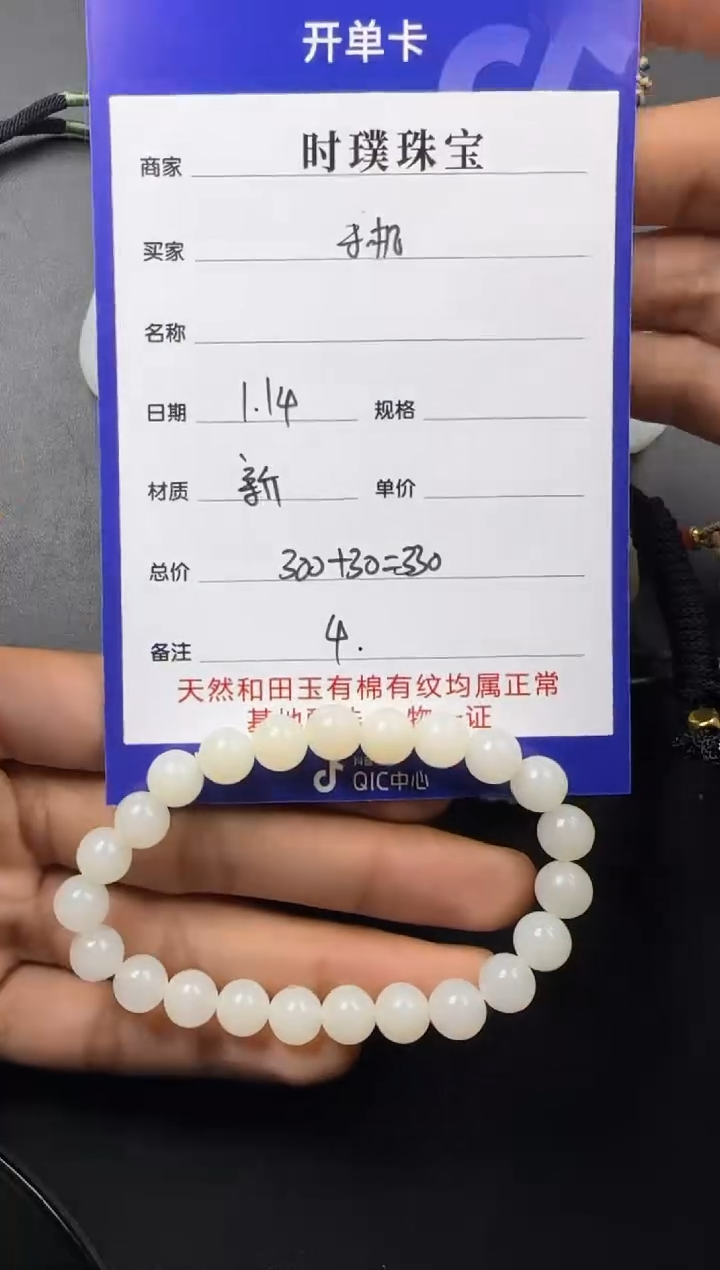 开单卡
商家 时璞珠宝
买家 手机
名称
日期 1.14 规格
材质 新 单价
总价 300+30=330
备注 4.
天然和田玉有棉有纹均属正常
基地 物一证
抖音
QIC中心